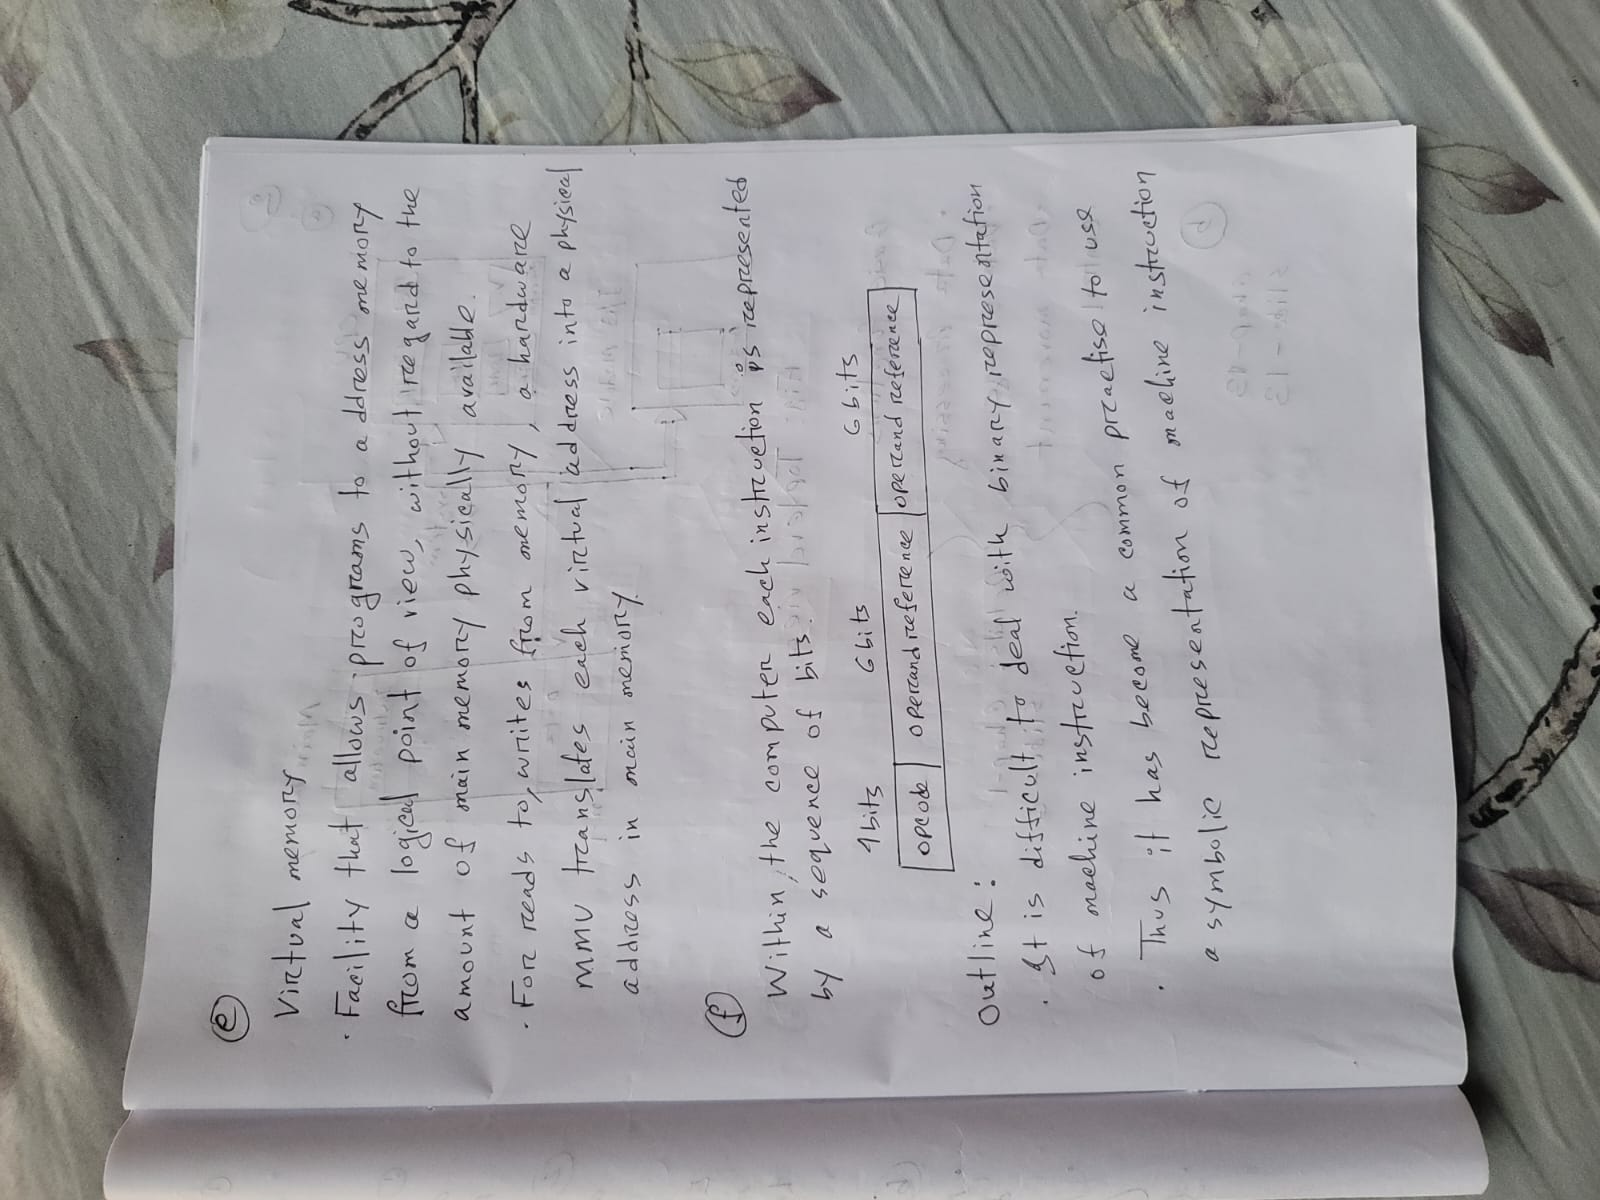 e
Virtual memory
· Facility that allows programs to address memory
from a logical point of view, without regard to the
amount of main memory physically available.
· For reads to, writes from memory, a hardware
MMU translates each virtual address into a physical
address in main memory.
f
Within, the computer each instruction is represented
by a sequence of bits.
4 bits 6 bits 6 bits
opcode operand reference operand reference
Outline:
· It is difficult to deal with binary representation
of machine instruction.
· Thus it has become a common practise to use
a symbolic representation of machine instruction